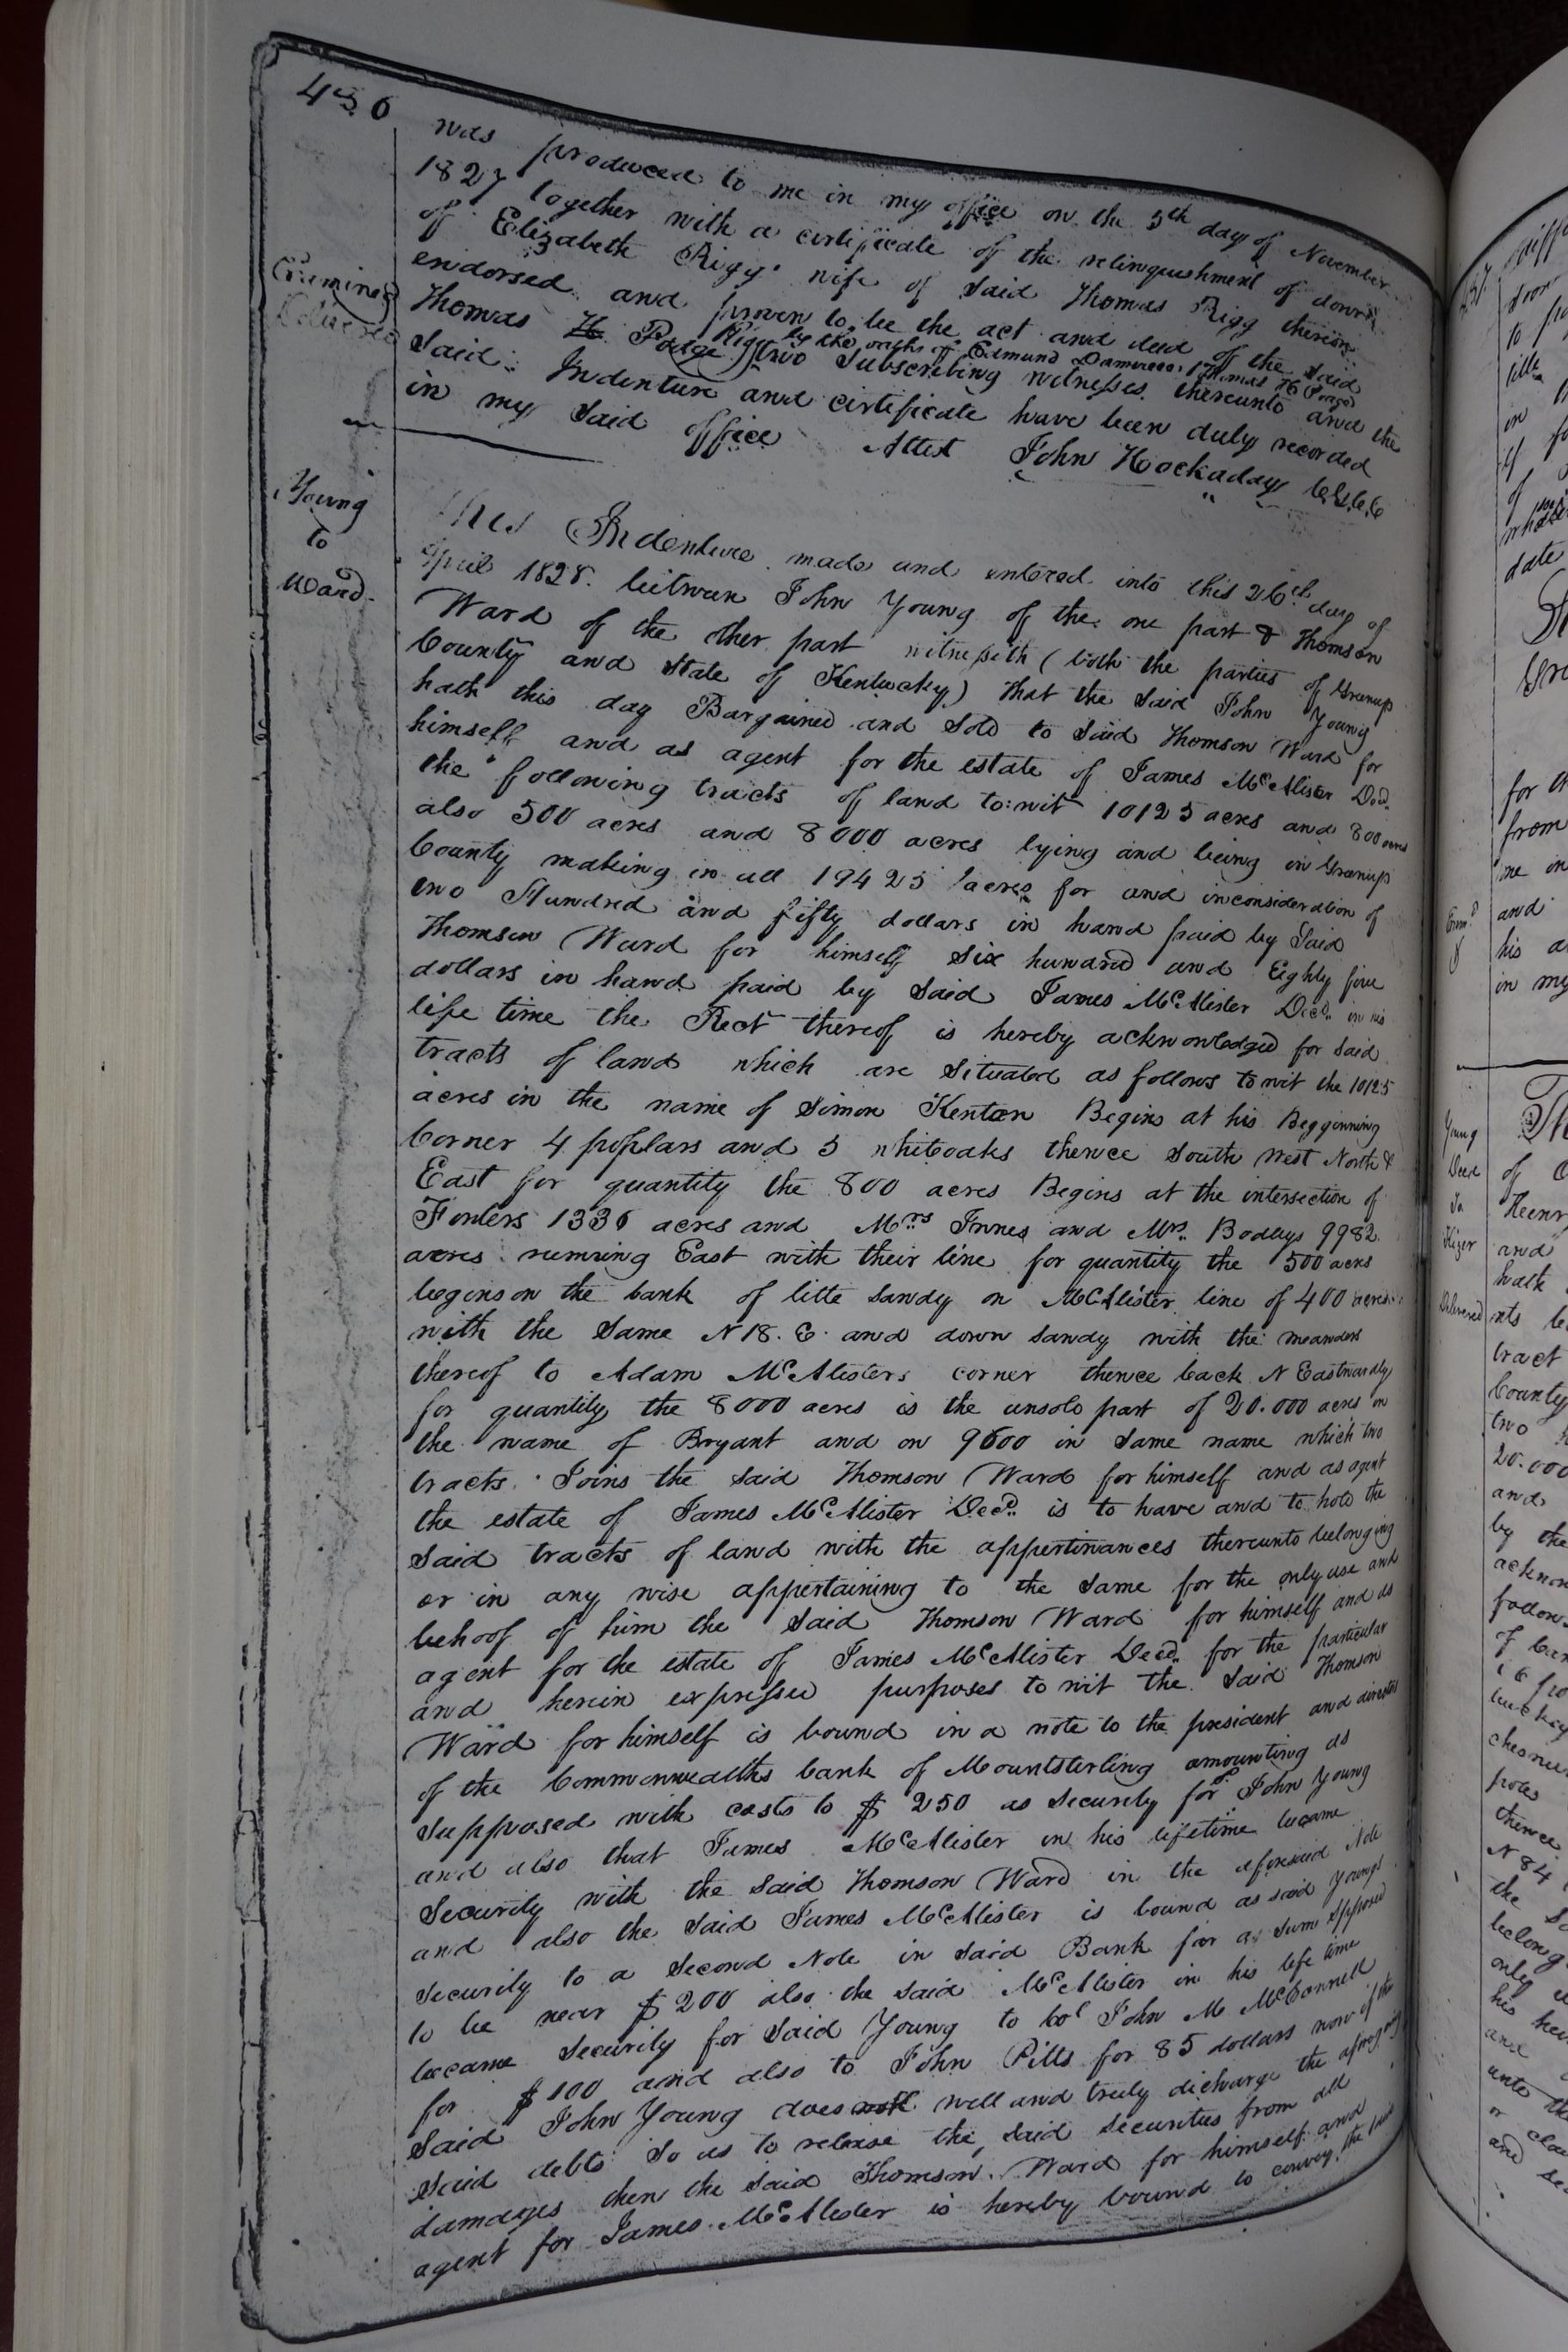 436
was produced to me in my office on the 5th day of November
1827 together with a certificate of the relinquishment of dower
of Elizabeth Rigg wife of said Thomas Rigg thereon
endorsed and proven to be the act and deed of the said
Thomas H. Poage Rigg by the oaths of Edmund Damereal Thomas H Poage
two subscribing witnesses thereunto and the
said Indenture and certificate have been duly recorded
in my said office Attest John Hockaday C.G.C.C
Examined
Delivered
Young
to
Ward
This Indenture made and entered into this 26th day of
April 1828. between John Young of the one part & Thomson
Ward of the other part witnesseth (both the parties of Greenup
County and state of Kentucky) that the said John Young
hath this day Bargained and sold to said Thomson Ward for
himself and as agent for the estate of James McAlister Decd.
the following tracts of land to:wit 10125 acres and 800 acres
also 500 acres and 8000 acres lying and being in Greenup
County making in all 19425 acres for and inconsideration of
two Hundred and fifty dollars in hand paid by Said
Thomson Ward for himself six hundred and Eighty five
dollars in hand paid by said James McAlister Decd. in his
life time the Rect thereof is hereby acknowledged for said
tracts of land which are situated as follows to wit the 10125
acres in the name of Simon Kenton Begins at his Beggining
Corner 4 poplars and 3 whiteoaks thence South West North &
East for quantity the 800 acres Begins at the intersection of
Fowlers 1336 acres and Mrs Innes and Mrs. Bodleys 9982
acres running East with their line for quantity the 500 acres
begins on the bank of litte Sandy on McAlister line of 400 acres
with the same N 18. E. and down Sandy with the meanders
thereof to Adam McAlisters corner thence back N Eastwardly
for quantity the 8000 acres is the unsold part of 20.000 acres in
the name of Bryant and on 9600 in same name which two
tracts Joins the said Thomson Ward for himself and as agent
the estate of James McAlister Decd. is to have and to hold the
said tracts of land with the appertinances thereunto belonging
or in any wise appertaining to the same for the only use and
behoof of him the said Thomson Ward for himself and as
agent for the estate of James McAlister Decd. for the particular
and herein expressed purposes to wit the said Thomson
Ward for himself is bound in a note to the president and directors
of the Commonwealths bank of Mountsterling amounting as
supposed with costs to $ 250 as Security for sd John Young
and also that James McAlister in his lifetime became
Security with the said Thomson Ward in the aforesaid Note
and also the said James McAlister is bound as said Youngs
security to a second Note in said Bank for a sum spposed
to be near $ 200 also the said McAlister in his life time
became Security for said Young to Col John M McConnell
for $ 100 and also to John Pitts for 85 dollars now if the
said John Young does well and truly discharge the aforegoing
said debts so as to release the said securities from all
damages then the said Thomson Ward for himself and
agent for James McAlister is hereby bound to convey the said
437
Young
Deed
To
Kizer
Delivered
for
from
me in
and
his
in my
of
Henr
and
hath
tract
County
two
20.000
and
by the
N 84
only
and
unto